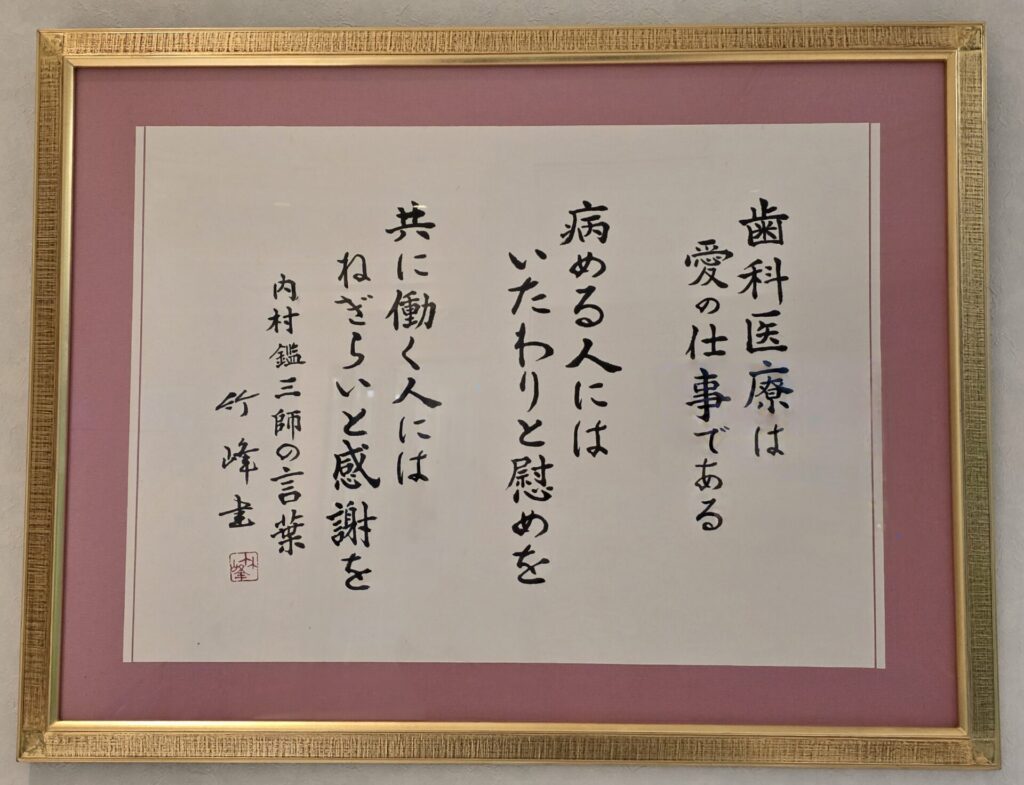 歯科医療は
愛の仕事である
病める人には
いたわりと慰めを
共に働く人には
ねぎらいと感謝を
内村鑑三師の言葉
竹峰書
竹峰